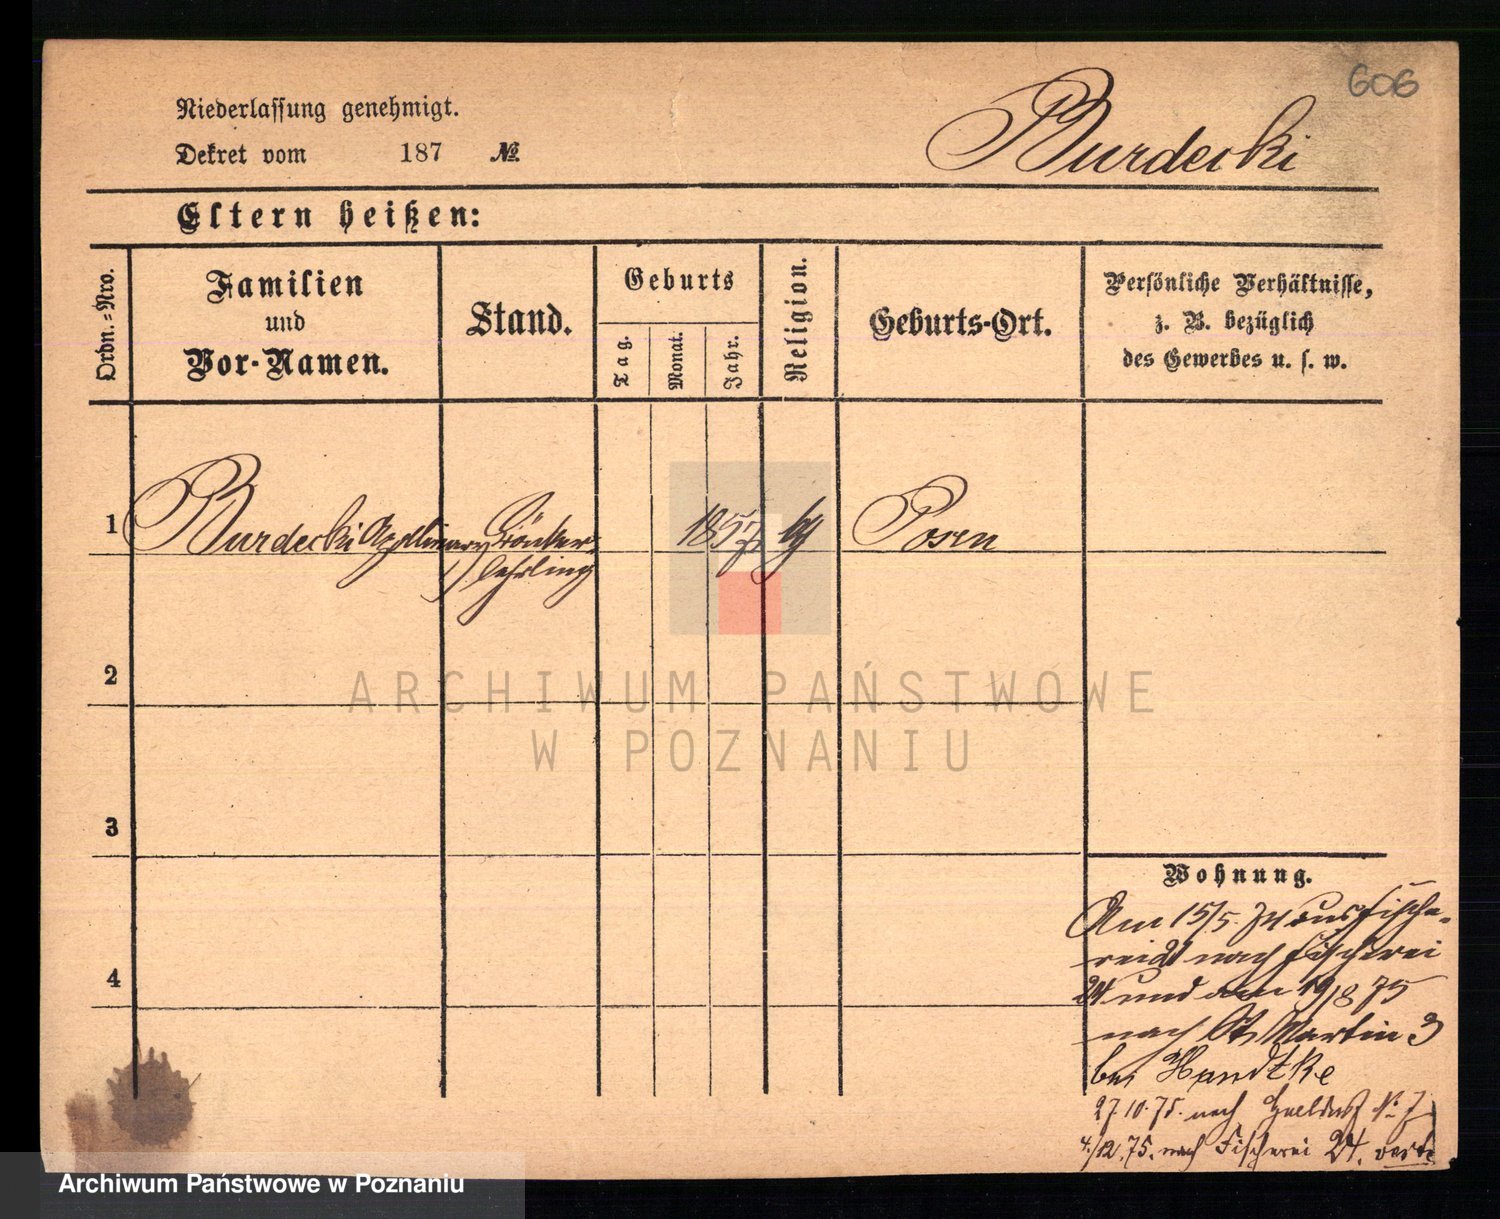 606
Niederlassung genehmigt.
Burdecki
Dekret vom 187 №
Eltern heißen:
Ordn.-Nro.
Familien
und
Vor-Namen.
Stand.
Geburts
Tag.
Monat.
Jahr.
Religion.
Geburts-Ort.
Persönliche Verhältnisse,
z. B. bezüglich
des Gewerbes u. s. w.
1 Burdecki Apollinary 1857 Posen
lehrling
2
ARCHIWUM PAŃSTWOWE
W POZNANIU
3
Wohnung.
Am 15/5. 74 aus Fische-
rei nach Fischerei
24 und am 19/8 75
4
nach St Martin 3
bei Handtke
27.10.75. nach № 7
4./12.75. nach Fischerei 24. verte
Archiwum Państwowe w Poznaniu